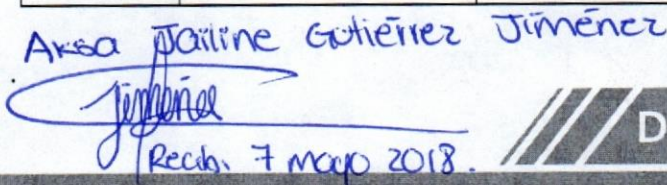 Aksa Jailine Gutiérrez Jiménez
Jiménez
Recibí 7 mayo 2018.
D